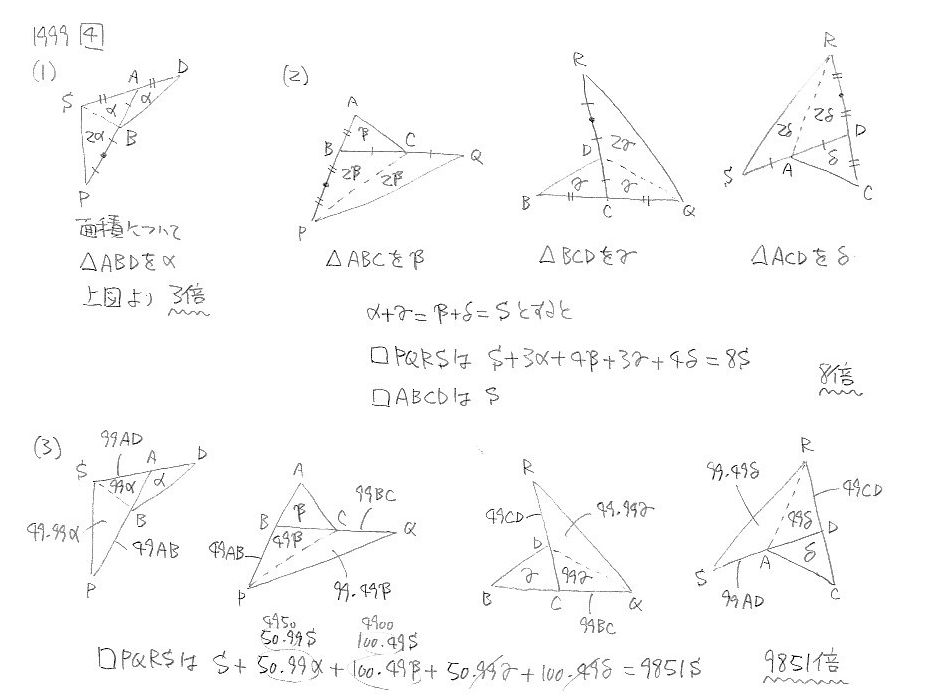 1999 4
(1)
S A D
α α
2α B
P
面積について
△ABDをα
上図より 3倍
(2)
A
β
B C Q
2β 2β
P
△ABCをβ
R
D 2γ
γ γ
B C Q
△BCDをγ
R
2δ 2δ
D
S A δ
C
△ACDをδ
α+γ=β+δ=Sとすると
□PQRSは S+3α+4β+3γ+4δ=8S
□ABCDは S
8倍
(3)
99AD
S A D
99α α
B
49·99α 49AB
P
A
β 99BC
B C Q
49AB 49β
P 99·49β
R
49CD 49·99γ
D
γ 99γ
B C Q
99BC
R
99·49δ 49CD
49δ D
S A δ
99AD C
4950 4900
50·99S 100·49S
□PQRSは S+50·99α+100·49β+50·99γ+100·49δ=9851S
9851倍